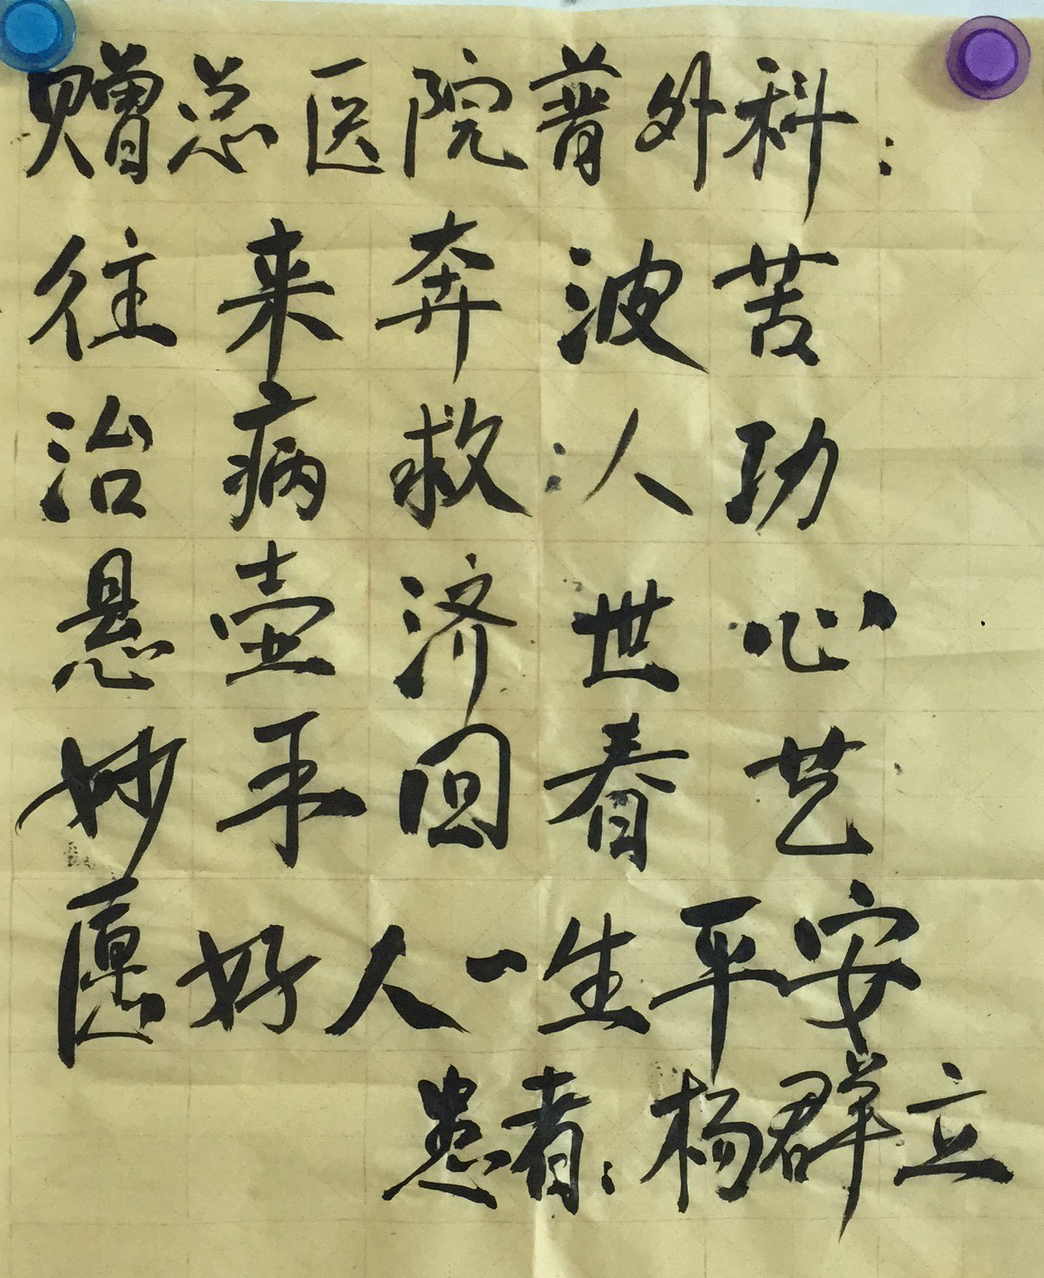 赠总医院普外科：
往来奔波苦
治病救人功
悬壶济世心
妙手回春艺
愿好人一生平安
患者：杨群立